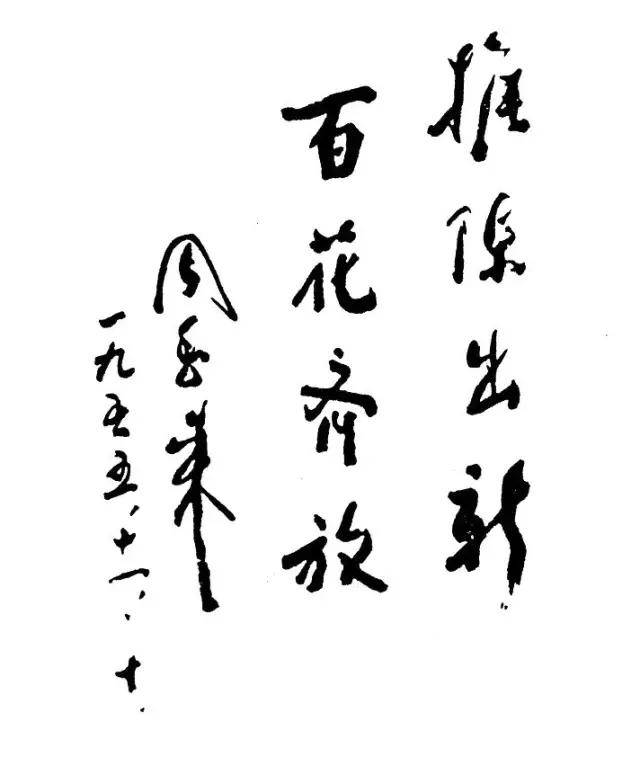 推陈出新
百花齐放
周恩来
一九五五、十一、十